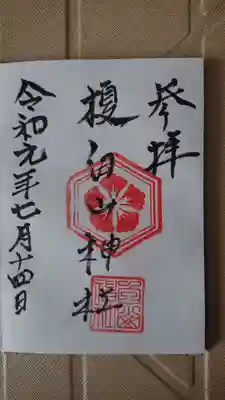 参拝
榎白山神社
令和元年七月十四日